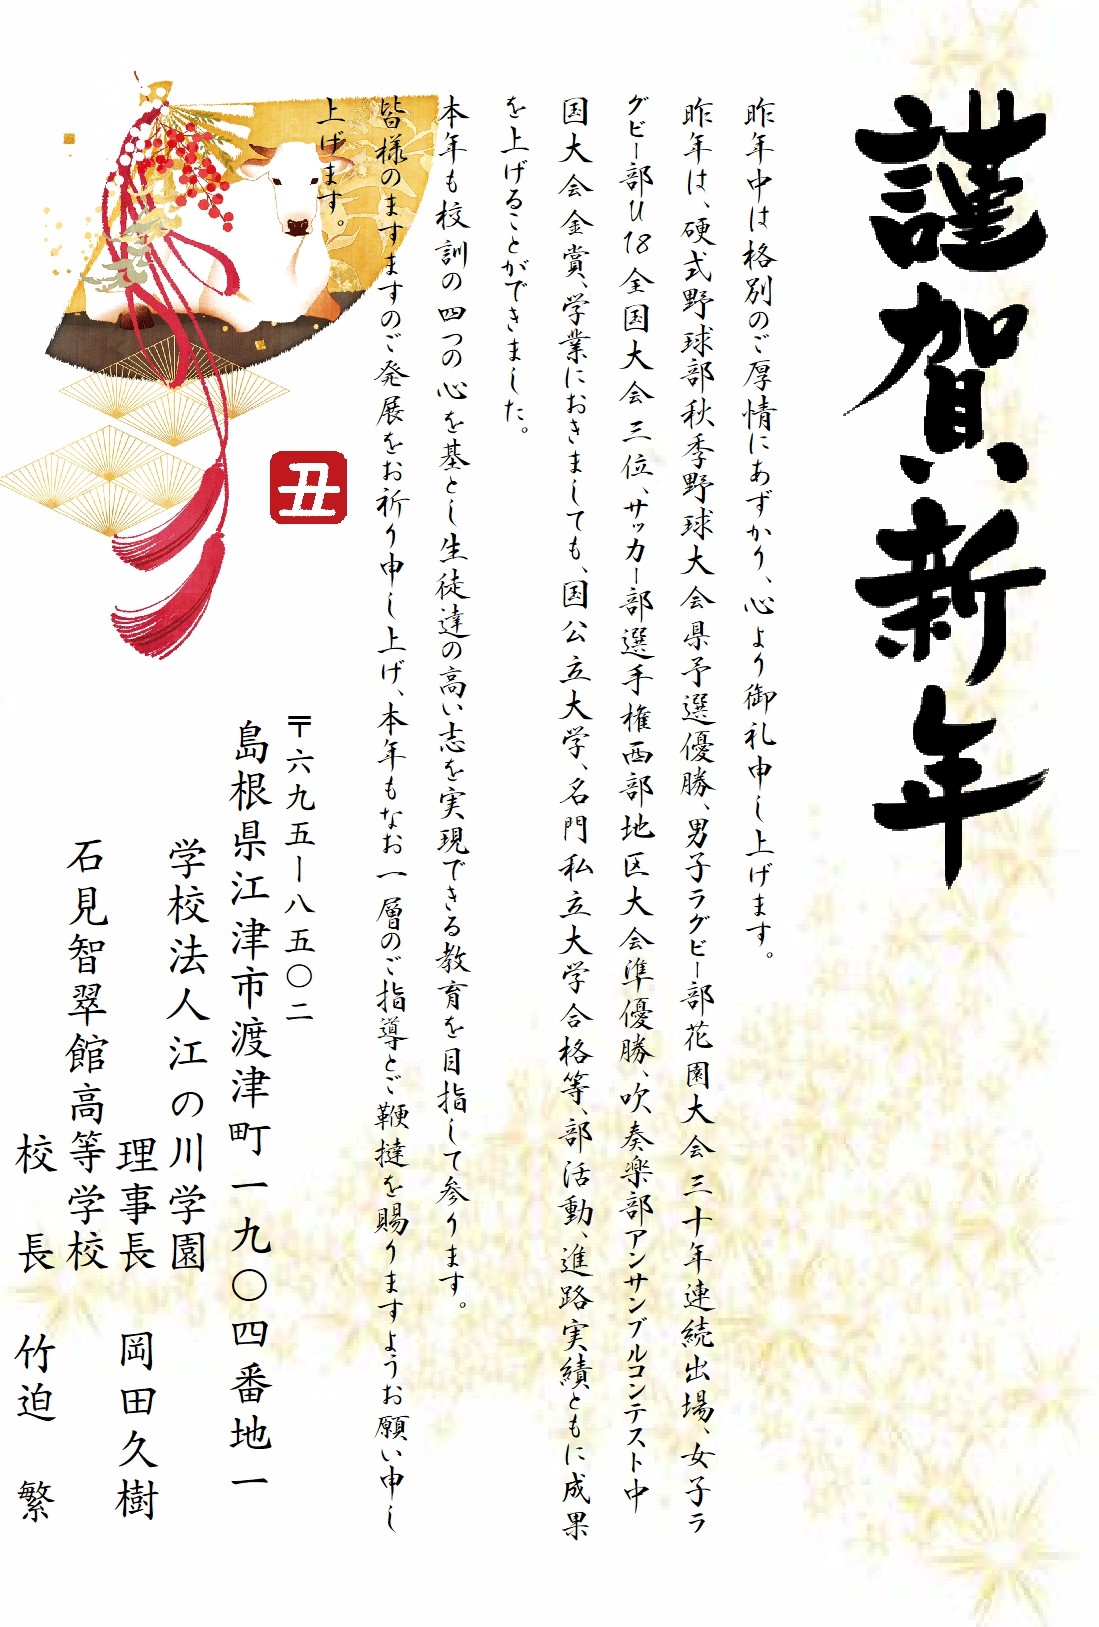 謹賀新年
昨年中は格別のご厚情にあずかり、心より御礼申し上げます。
昨年は、硬式野球部秋季野球大会県予選優勝、男子ラグビー部花園大会三十年連続出場、女子ラ
グビー部U18全国大会三位、サッカー部選手権西部地区大会準優勝、吹奏楽部アンサンブルコンテスト中
国大会金賞、学業におきましても、国公立大学、名門私立大学合格等、部活動、進路実績ともに成果
を上げることができました。
本年も校訓の四つの心を基とし生徒達の高い志を実現できる教育を目指して参ります。
皆様のますますのご発展をお祈り申し上げ、本年もなお一層のご指導とご鞭撻を賜りますようお願い申し
上げます。
丑
〒六九五ー八五〇二
島根県江津市渡津町一九〇四番地一
学校法人江の川学園
理事長 岡田久樹
石見智翠館高等学校
校 長 竹迫 繁